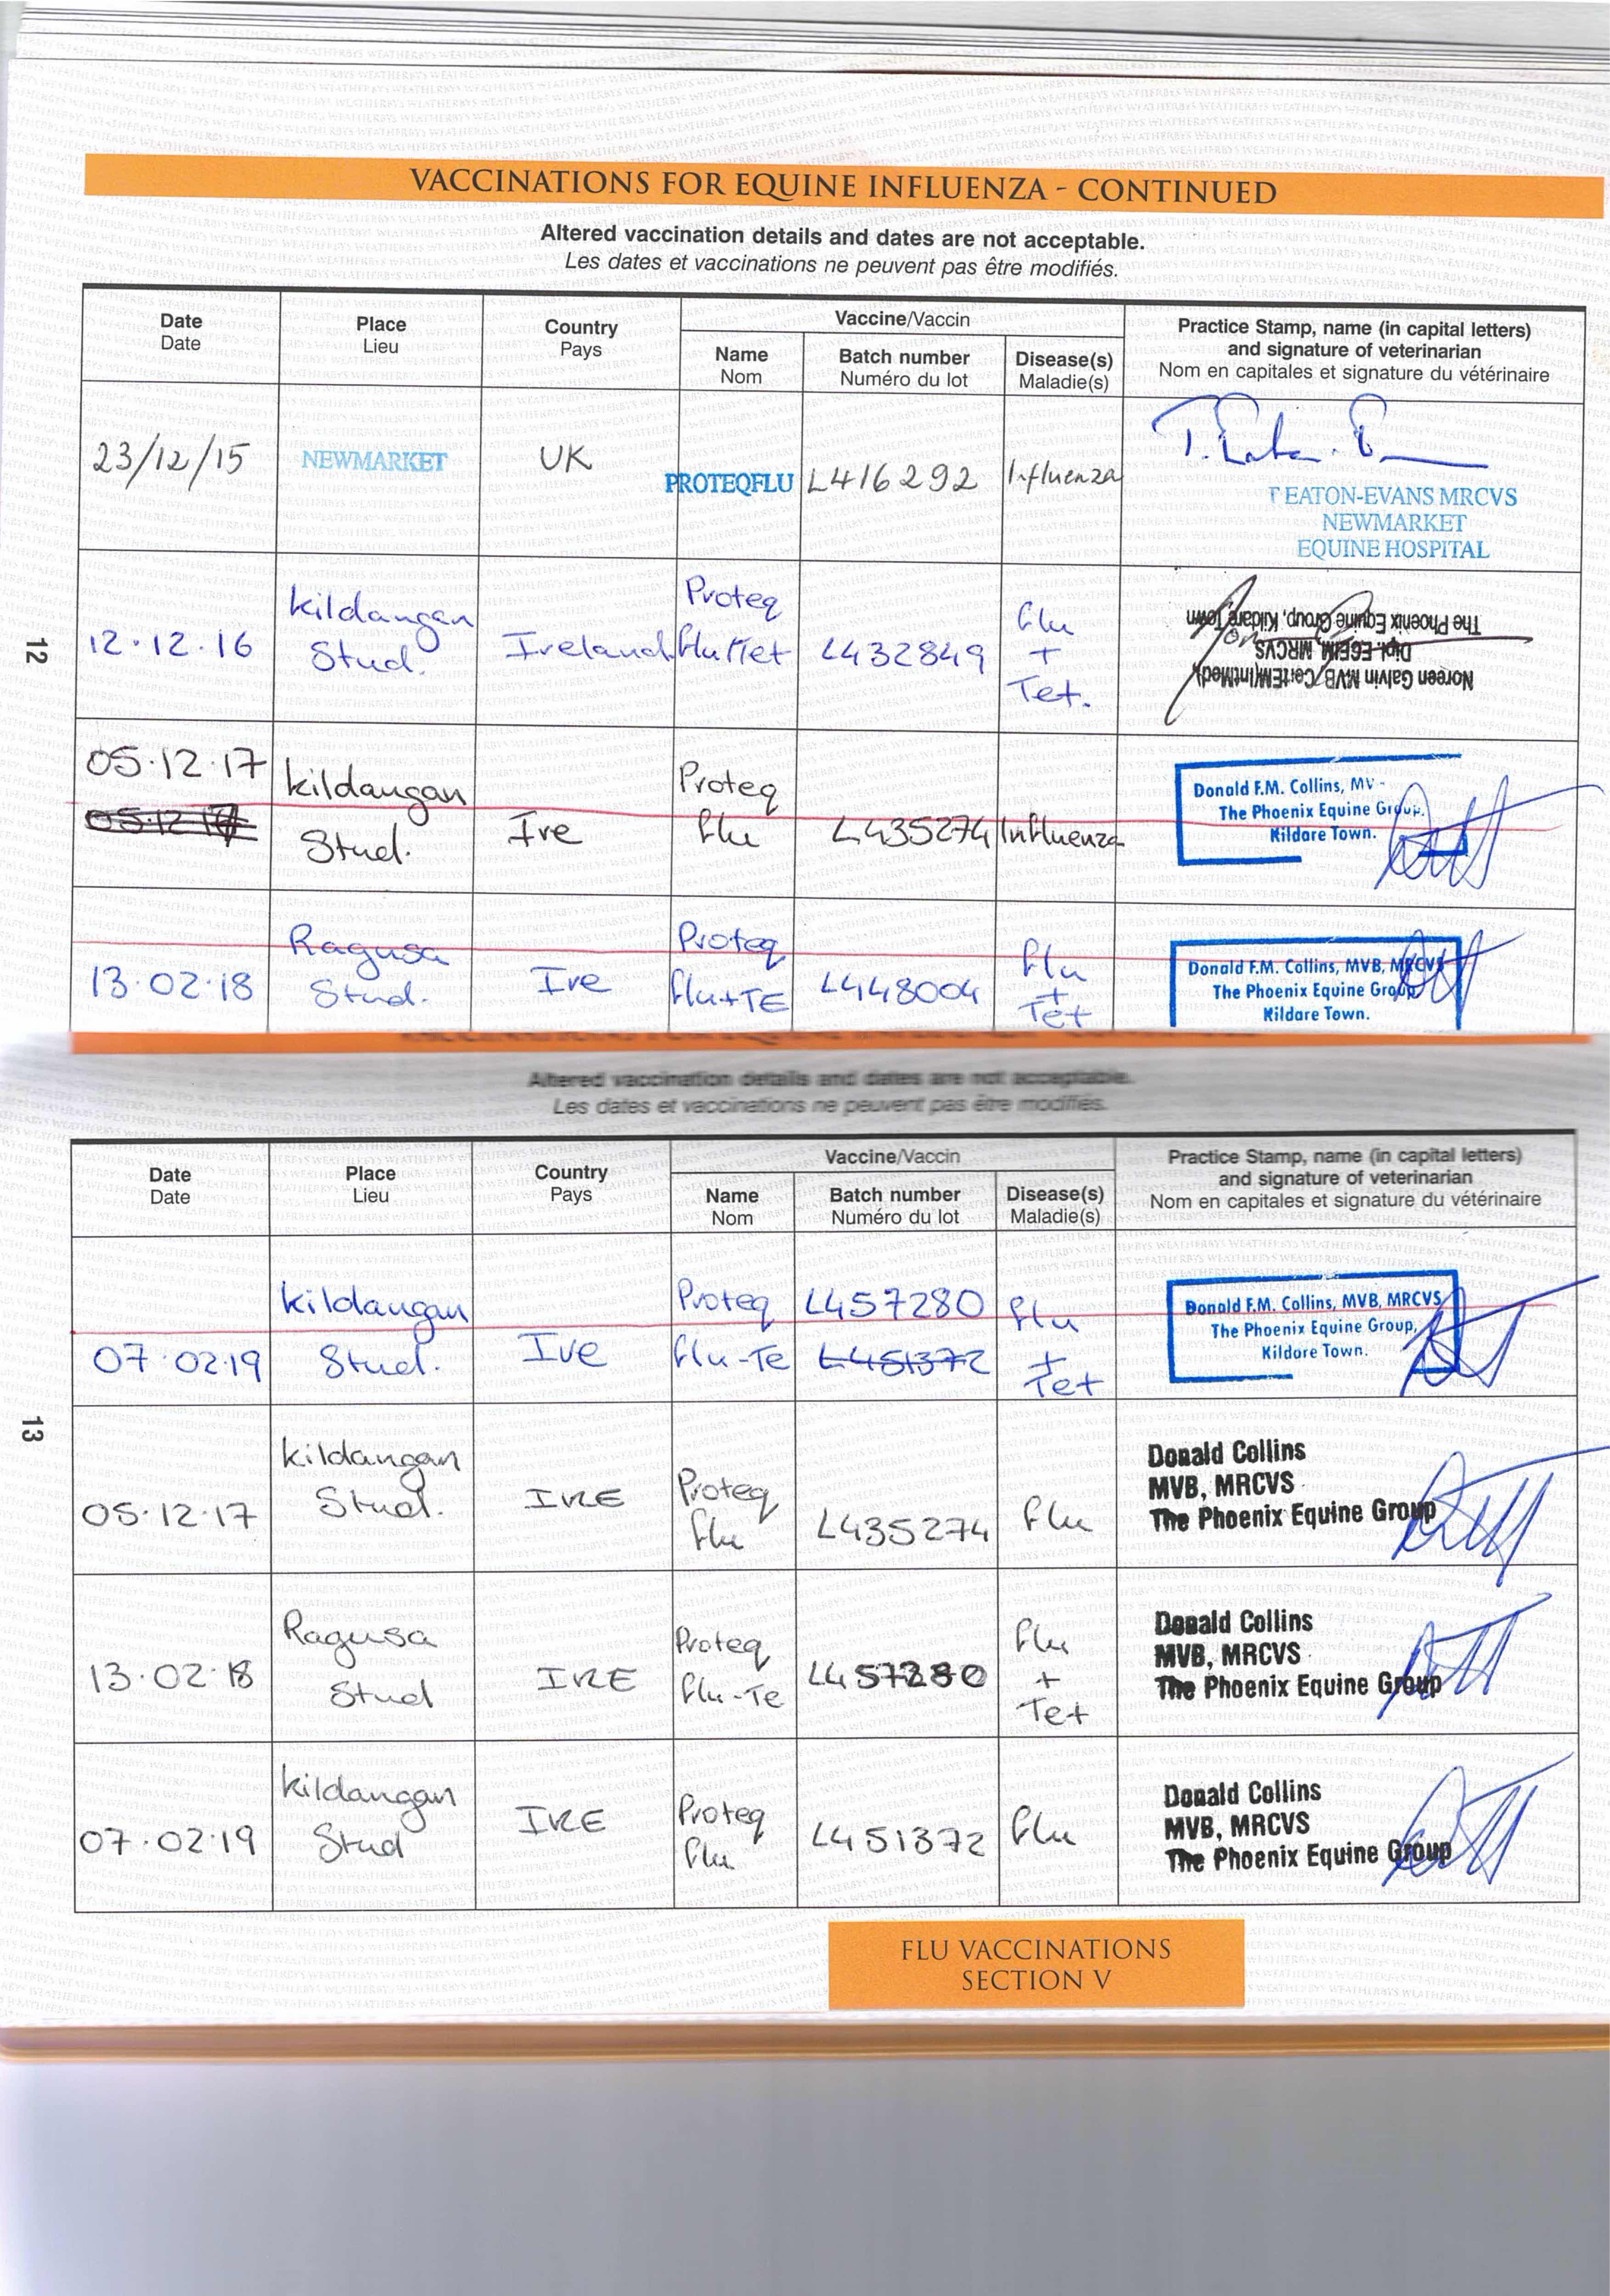 VACCINATIONS FOR EQUINE INFLUENZA - CONTINUED
Altered vaccination details and dates are not acceptable.
Les dates et vaccinations ne peuvent pas être modifiés.
Date
Date
Place
Lieu
Country
Pays
Vaccine/Vaccin
Name
Nom
Batch number
Numéro du lot
Disease(s)
Maladie(s)
Practice Stamp, name (in capital letters)
and signature of veterinarian
Nom en capitales et signature du vétérinaire
23/12/15
NEWMARKET
UK
PROTEQFLU
L416292
Influenza
T EATON-EVANS MRCVS
NEWMARKET
EQUINE HOSPITAL
12
12.12.16
Kildangan
Stud.
Ireland
Proteq
Flu/Tet
L432849
Flu
+
Tet.
Noreen Galvin MVB CertEM(IntMed)
Dipl. ECEIM, MRCVS
The Phoenix Equine Group, Kildare Town
05.12.17
Kildangan
Stud.
Ire
Proteq
Flu
L435274
Influenza
Donald F.M. Collins, MV
The Phoenix Equine Group.
Kildare Town.
13.02.18
Ragusa
Stud.
Ire
Proteq
Flu+TE
L448004
Flu
+
Tet
Donald F.M. Collins, MVB, MRCVS
The Phoenix Equine Group
Kildare Town.
Altered vaccination details and dates are not acceptable.
Les dates et vaccinations ne peuvent pas être modifiés.
Date
Date
Place
Lieu
Country
Pays
Vaccine/Vaccin
Name
Nom
Batch number
Numéro du lot
Disease(s)
Maladie(s)
Practice Stamp, name (in capital letters)
and signature of veterinarian
Nom en capitales et signature du vétérinaire
07.02.19
Kildangan
Stud.
Ire
Proteq
Flu-Te
L457280
L451372
Flu
+
Tet
Donald F.M. Collins, MVB, MRCVS
The Phoenix Equine Group,
Kildare Town.
13
05.12.17
Kildangan
Stud.
IRE
Proteq
Flu
L435274
Flu
Donald Collins
MVB, MRCVS
The Phoenix Equine Group
13.02.18
Ragusa
Stud
IRE
Proteq
Flu-Te
L457280
Flu
+
Tet
Donald Collins
MVB, MRCVS
The Phoenix Equine Group
07.02.19
Kildangan
Stud
IRE
Proteq
Flu
L451372
Flu
Donald Collins
MVB, MRCVS
The Phoenix Equine Group
FLU VACCINATIONS
SECTION V